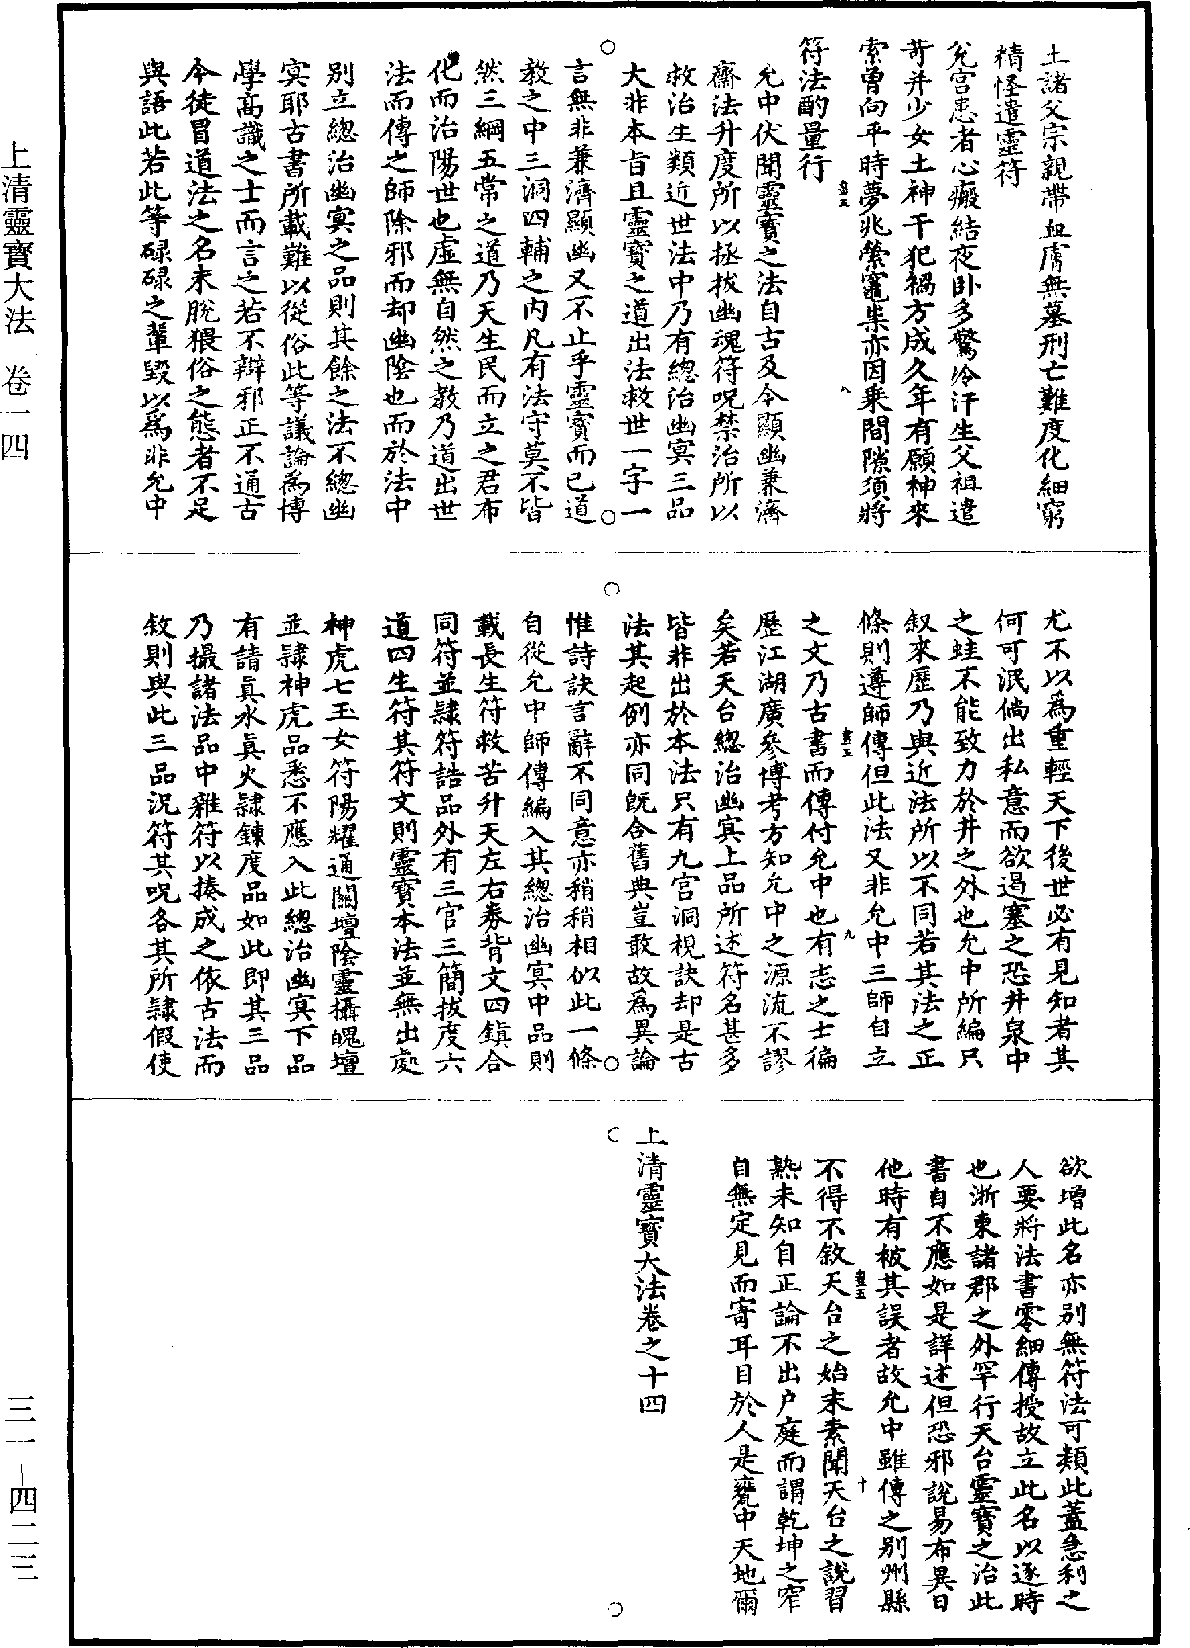 土諸父宗親帶血膚無墓刑亡難度化細窮
精怪遣靈符
兊宮患者心癡結夜卧多驚冷汗生父祖遣
苛并少女土神干犯禍方成久年有願神來
索曽向平時夢兆縈竈祟亦因乗間隙須將
符法酌量行
允中伏聞靈寶之法自古及今顯幽兼濟
齋法升度所以拯拔幽魂符呪禁治所以
救治生類近世法中乃有總治幽冥三品
大非本旨且靈寶之道出法救世一字一
言無非兼濟顯幽又不止乎靈寶而已道
教之中三洞四輔之内凡有法守莫不皆
然三綱五常之道乃天生民而立之君布
化而治陽世也虛無自然之教乃道出世
法而傳之師除邪而却幽陰也而於法中
別立總治幽冥之品則其餘之法不總幽
冥耶古書所載難以從俗此等議論為博
學高識之士而言之若不辯邪正不通古
今徒冒道法之名未脫猥俗之態者不足
與語此若此等碌碌之輩毀以為非允中
尤不以為重輕天下後世必有見知者其
何可泯倘出私意而欲遏塞之恐井泉中
之蛙不能致力於井之外也允中所編只
叙來歷乃與近法所以不同若其法之正
條則遵師傳但此法又非允中三師自立
之文乃古書而傳付允中也有志之士徧
歷江湖廣參博考方知允中之源流不謬
矣若天台總治幽冥上品所述符名甚多
皆非出於本法只有九宮洞視訣却是古
法其起例亦同旣合舊典豈敢故為異論
惟詩訣言辭不同意亦稍稍相似此一條
自從允中師傳編入其總治幽冥中品則
載長生符救苦升天左右券背文四鎮合
同符並隷符誥品外有三官三簡拔度六
道四生符其符文則靈寶本法並無出處
神虎七玉女符陽耀通關壇陰靈攝魄壇
並隷神虎品悉不應入此總治幽冥下品
有請眞水眞火隷鍊度品如此即其三品
乃撮諸法品中雜符以揍成之依古法而
敘則與此三品況符其呪各其所隷假使
欲增此名亦別無符法可類此蓋急利之
人要將法書零細傳授故立此名以逐時
也浙東諸郡之外罕行天台靈寶之治此
書自不應如是詳述但恐邪說易布異日
他時有被其誤者故允中雖傳之別州縣
不得不敘天台之始末素聞天台之說習
熟未知自正論不出户庭而謂乾坤之窄
自無定見而寄耳目於人是甕中天地爾
上清靈寶大法卷之十四
上清靈寶大法 卷一四
三一-四二三